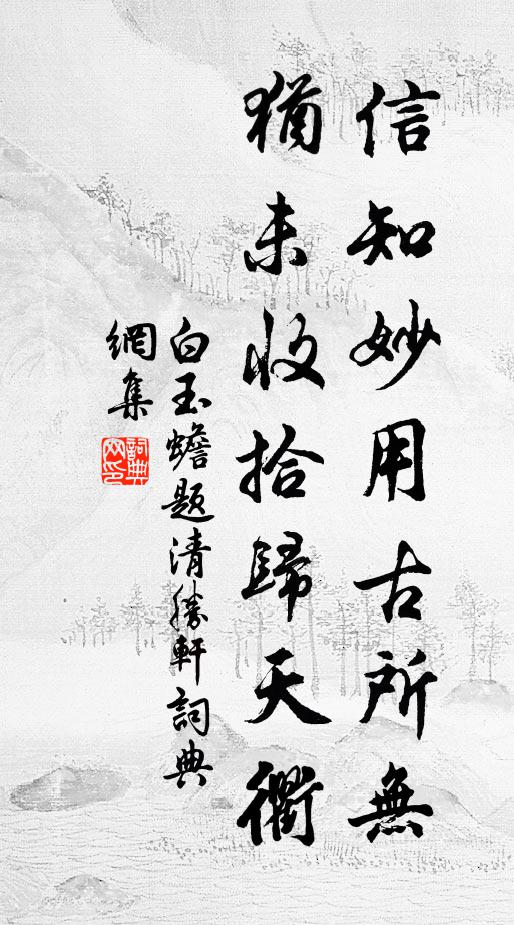 信知妙用古所無
猶未收拾歸天衢
白玉蟾題清勝軒詞典
網集
詞典
网印